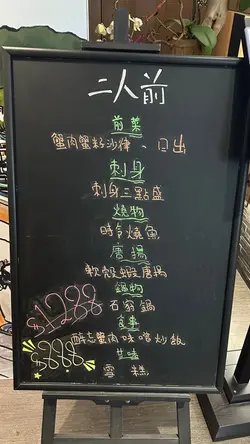 二人前
前菜
蟹肉蟹籽沙律、日出
刺身
刺身三點盛
燒物
時令燒魚
唐揚
軟殼蝦唐揚
鍋物
石狩鍋
$1288
食事
醉志蟹肉味噌炒飯
$888
甘味
雪糕